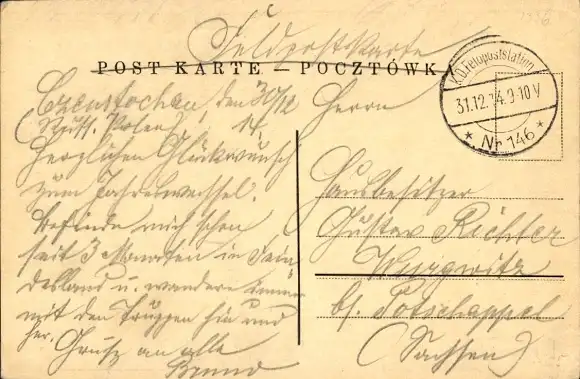 Feldpostkarte
POST KARTE – POCZTÓWKA
K.D. Feldpoststation
31.12.14. 9-10 V
* Nr 146 *
Czenstochau, den 30/12
(Russ. Polen) 14.
Herzlichen Glückwunsch
zum Jahreswechsel.
Befinde mich schon
seit 3 Monaten in Fein
desland u. wandere immer
mit den Truppen hin und
her. Gruss an alle
Benno
Herrn
Hausbesitzer
Gustav Richter
Wurgwitz
b/. Potschappel
(Sachsen)